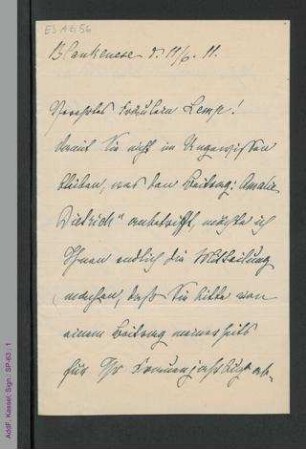 Blankenese d. 11/6. 11.
Verehrtes Fräulein Lemp!
Damit Sie nicht im Ungewissen
bleiben, was den Beitrag: „Amalie
Dietrich“ anbetrifft, möchte ich
Ihnen endlich die Mitteilung
machen, daß Sie bitte von
einem Beitrag meinerseits
für Ihr Frauenjahrbuch ab-
AddF, Kassel, Sign.: SP-63 ; 1